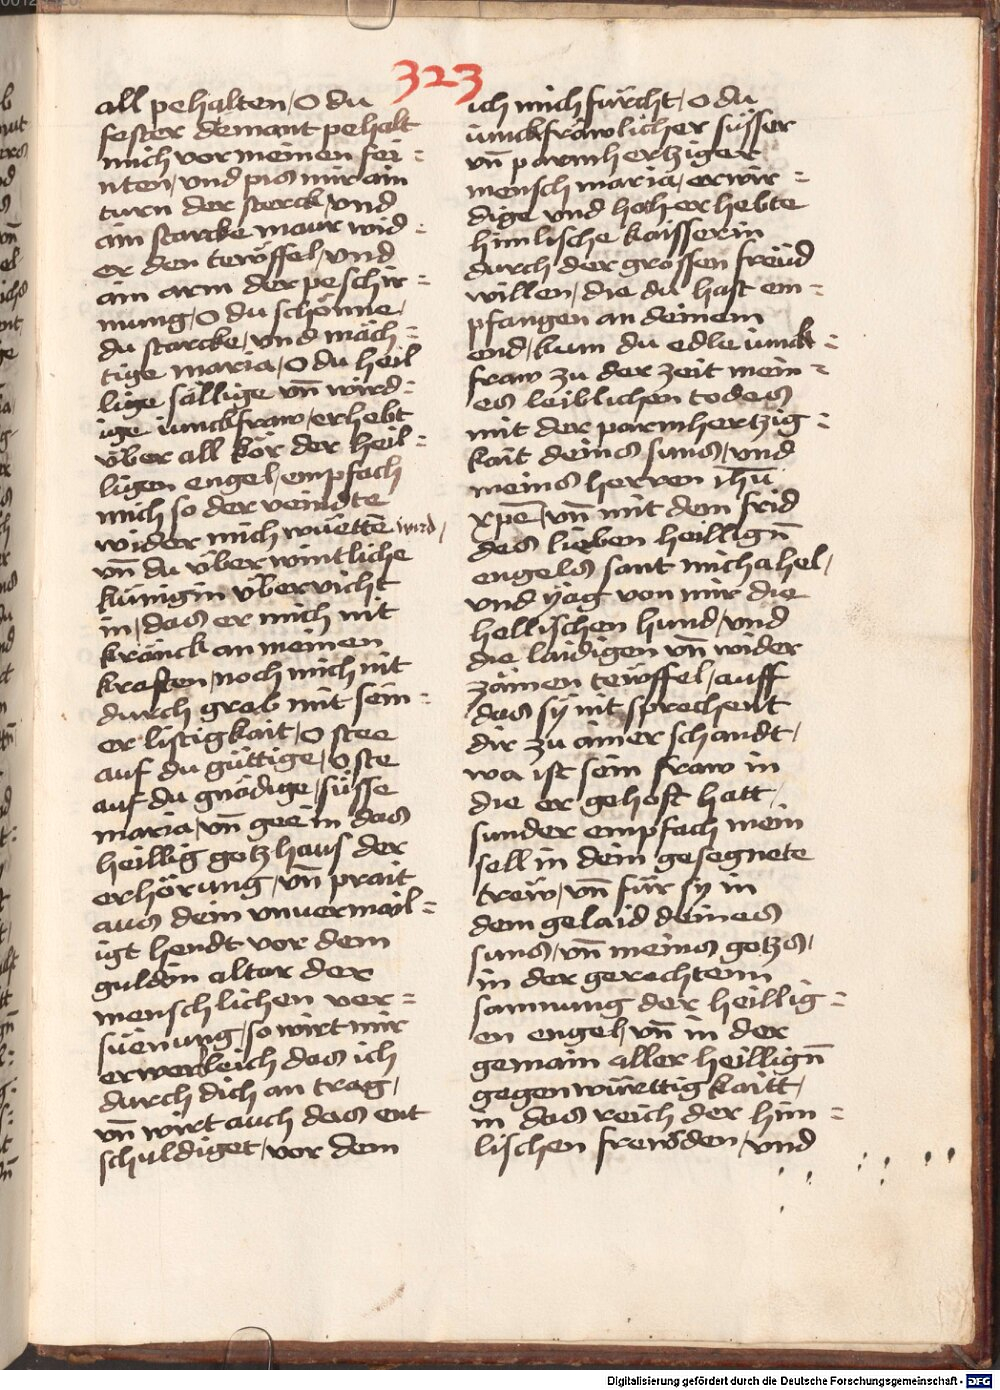 323
all pehalten / O du
fester demant pehalt
mich vor meinen fei=
nten / und pis mir ain
turn der sterck / vnd
ain starcke maur wid=
er den tewffel / vnd
ain arm der peschir=
mung / O du schönne /
du starcke / vnd mäch=
tige maria / O du heil
lige sällige vn̄ wird=
ige iunckfraw / erhebt
über all kör der heil=
ligen engel / empfach
mich so der veindte
wider mich wüettē wird /
vn̄ du über wintliche
künigin über vicht
in / das er mich nit
kränck an meinen
kraften / noch mich nit
durch grab mit sein=
er listigkait / O stee
auf du güttige / O ste
auf du gnädige / süsse
maria / vn̄ gee in das
heillig gotzhaus der
erhörung / vn̄ prait
aus dein vnuermäil=
igt hendt vor dem
guldin altar der
menschlichen ver=
süenung / so wirt mir
erwerbleich das ich
durch dich an trag /
vn̄ wirt auch das ent
schuldiget / vor dem
ich mich fürcht / o du
iunckfräwlicher süsser
vn̄ parmhertziger
mensch maria / erwir=
dige vnd hoch erhebte
himlische kaisserin
durch der grossen freüd
willen / die du hast em=
pfangen an deinem
end / kum du edle iunck=
fraw zu der zeit mein=
es leiblichen todes
mit der parmhertzig=
kait deins suns / vnd
meins herren ihū
xpē / vn̄ mit dem frid
des lieben heillign̄
engels sant michahel /
vnd yäg von mir die
hellischen hund / vnd
die laidigen vn̄ wider
zämen tewffel / auff
das sy nit sprechent
dir zu ainer schandt /
wa ist sein fraw in
die er gehoft hatt /
sunder empfach mein
sell in dein gesegnete
trew / vn̄ für sy in
dem gelaid deines
suns / vn̄ meins gotzs /
in der gerechtenn
samnung der heillig=
en engel / vn̄ in der
gemain aller heillign̄
gegenwürttigkaitt /
in das reich der him=
lischen frewden / vnd
Digitalisierung gefördert durch die Deutsche Forschungsgemeinschaft - DFG